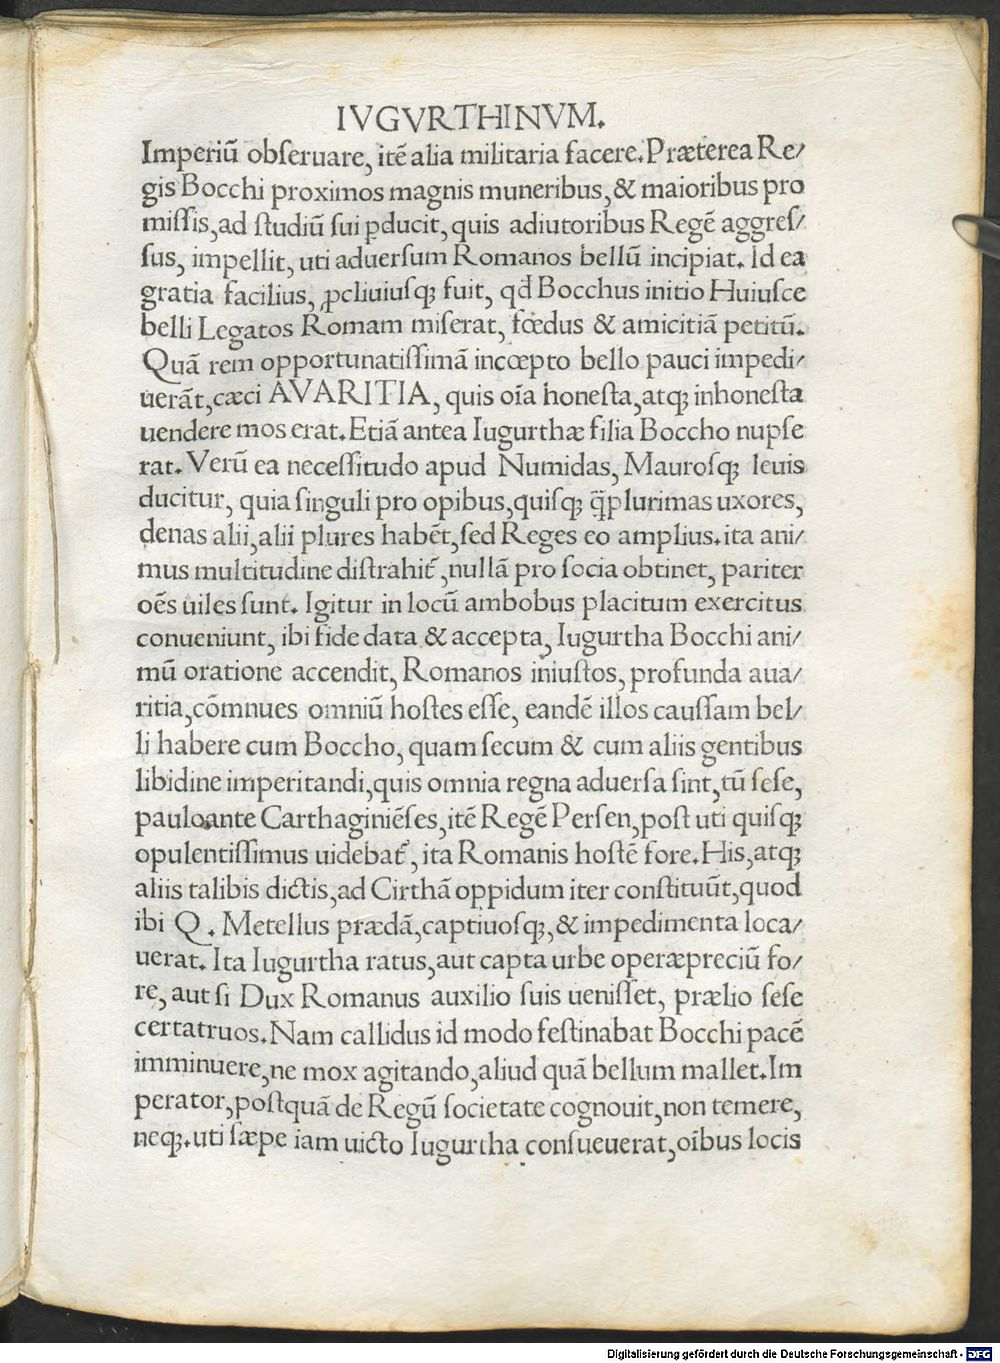 IVGVRTHINVM.
Imperiū obſeruare, itē alia militaria facere. Præterea Re/
gis Bocchi proximos magnis muneribus, & maioribus pro
miſſis, ad ſtudiū ſui ꝑducit, quis adiutoribus Regē aggreſ/
ſus, impellit, uti aduerſum Romanos bellū incipiat. Id ea
gratia facilius, ꝓcliuiuſqꝫ fuit, qđ Bocchus initio Huiuſce
belli Legatos Romam miſerat, fœdus & amicitiā petitū.
Quā rem opportunatiſſimā incœpto bello pauci impedi/
uerāt, cæci AVARITIA, quis oīa honeſta, atqꝫ inhoneſta
uendere mos erat. Etiā antea Iugurthæ filia Boccho nupſe
rat. Verū ea neceſſitudo apud Numidas, Mauroſqꝫ leuis
ducitur, quia ſinguli pro opibus, quiſqꝫ q̄plurimas uxores,
denas alii, alii plures habēt, ſed Reges eo amplius. ita ani/
mus multitudine diſtrahit᷑, nullā pro ſocia obtinet, pariter
oēs uiles ſunt. Igitur in locū ambobus placitum exercitus
conueniunt, ibi fide data & accepta, Iugurtha Bocchi ani/
mū oratione accendit, Romanos iniuſtos, profunda aua/
ritia, cōmnues omniū hoſtes eſſe, eandē illos cauſſam bel/
li habere cum Boccho, quam ſecum & cum aliis gentibus
libidine imperitandi, quis omnia regna aduerſa ſint, tū ſeſe,
pauloante Carthaginiēſes, itē Regē Perſen, poſt uti quiſqꝫ
opulentiſſimus uidebat᷑, ita Romanis hoſtē fore. His, atqꝫ
aliis talibis dictis, ad Cirthā oppidum iter conſtituūt, quod
ibi Q. Metellus prædā, captiuoſqꝫ, & impedimenta loca/
uerat. Ita Iugurtha ratus, aut capta urbe operæpreciū fo/
re, aut ſi Dux Romanus auxilio ſuis ueniſſet, prælio ſeſe
certatruos. Nam callidus id modo feſtinabat Bocchi pacē
imminuere, ne mox agitando, aliud quā bellum mallet. Im
perator, poſtquā de Regū ſocietate cognouit, non temere,
neqꝫ. uti ſæpe iam uicto Iugurtha conſueuerat, oībus locis
Digitalisierung gefördert durch die Deutsche Forschungsgemeinschaft - DFG